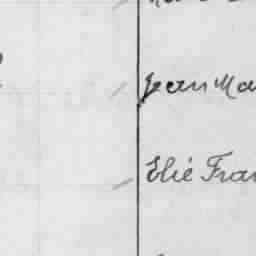 Jean Ma
Elie Fran